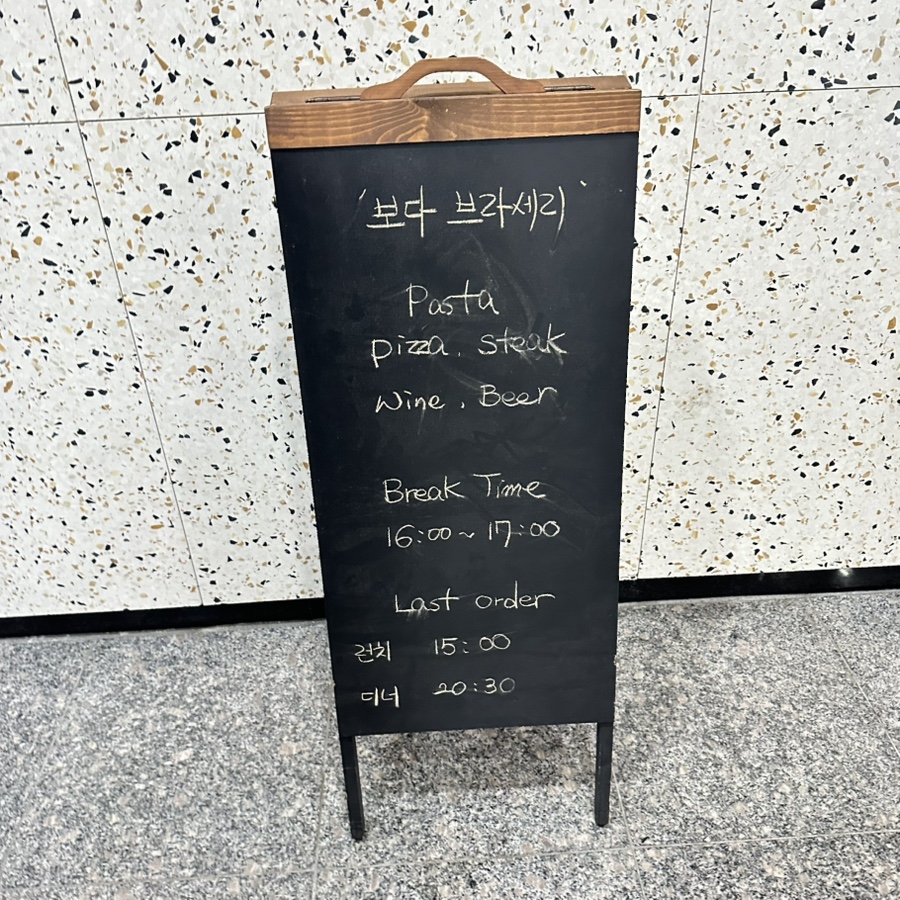 '보다 브라세리'
Pasta
pizza. steak
wine. Beer
Break Time
16:00~17:00
Last order
런치 15:00
디너 20:30